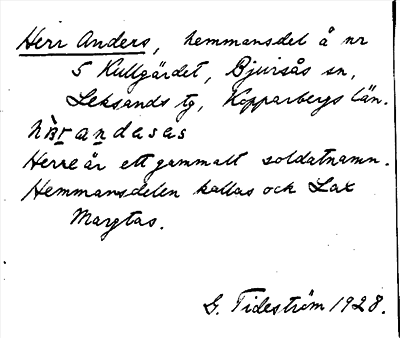 Herr Anders, hemmansdel å nr
5 Kullgärdet, Bjursås sn,
Leksands tg, Kopparbergs län.
Herre är ett gammalt soldatnamn.
Hemmansdelen kallas och Lax
Margtas.
G. Tideström 1928.